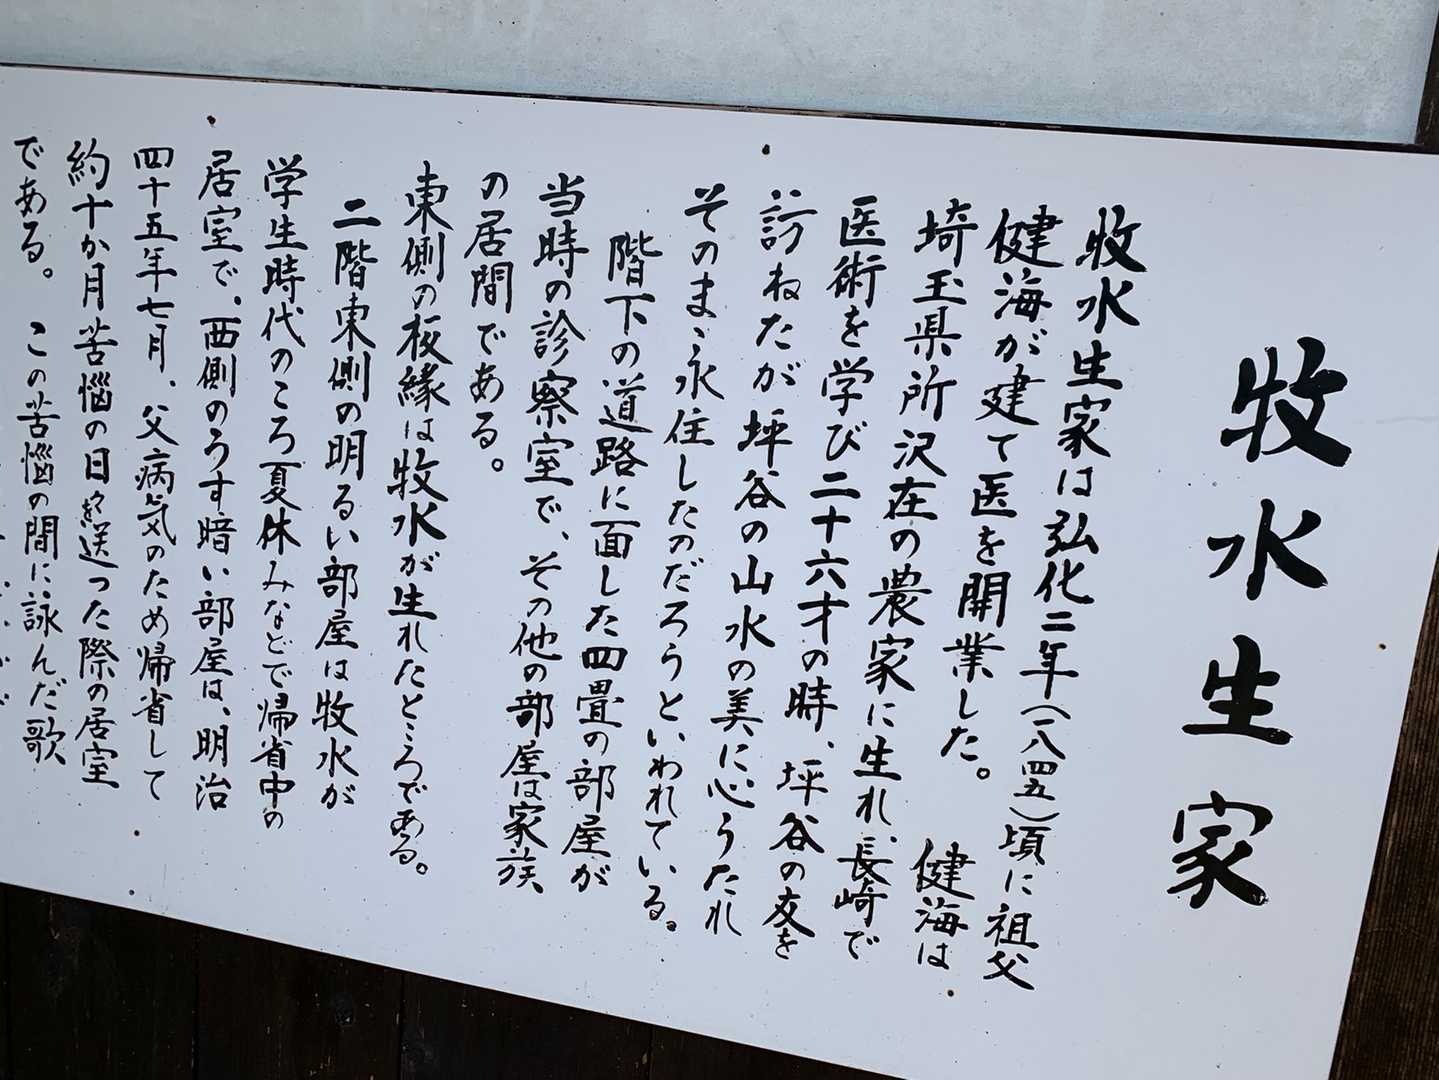 牧水生家
牧水生家は弘化二年（一八四五）頃に祖父
健海が建て医を開業した。　健海は
埼玉県所沢在の農家に生れ、長崎で
医術を学び二十六才の時、坪谷の友を
訪ねたが坪谷の山水の美に心うたれ
そのまゝ永住したのだろうといわれている。
階下の道路に面した四畳の部屋が
当時の診察室で、その他の部屋は家族
の居間である。
東側の板縁は牧水が生れたところである。
二階東側の明るい部屋は牧水が
学生時代のころ夏休みなどで帰省中の
居室で、西側のうす暗い部屋は、明治
四十五年七月、父病気のため帰省して
約十か月苦悩の日を送った際の居室
である。　この苦悩の間に詠んだ歌